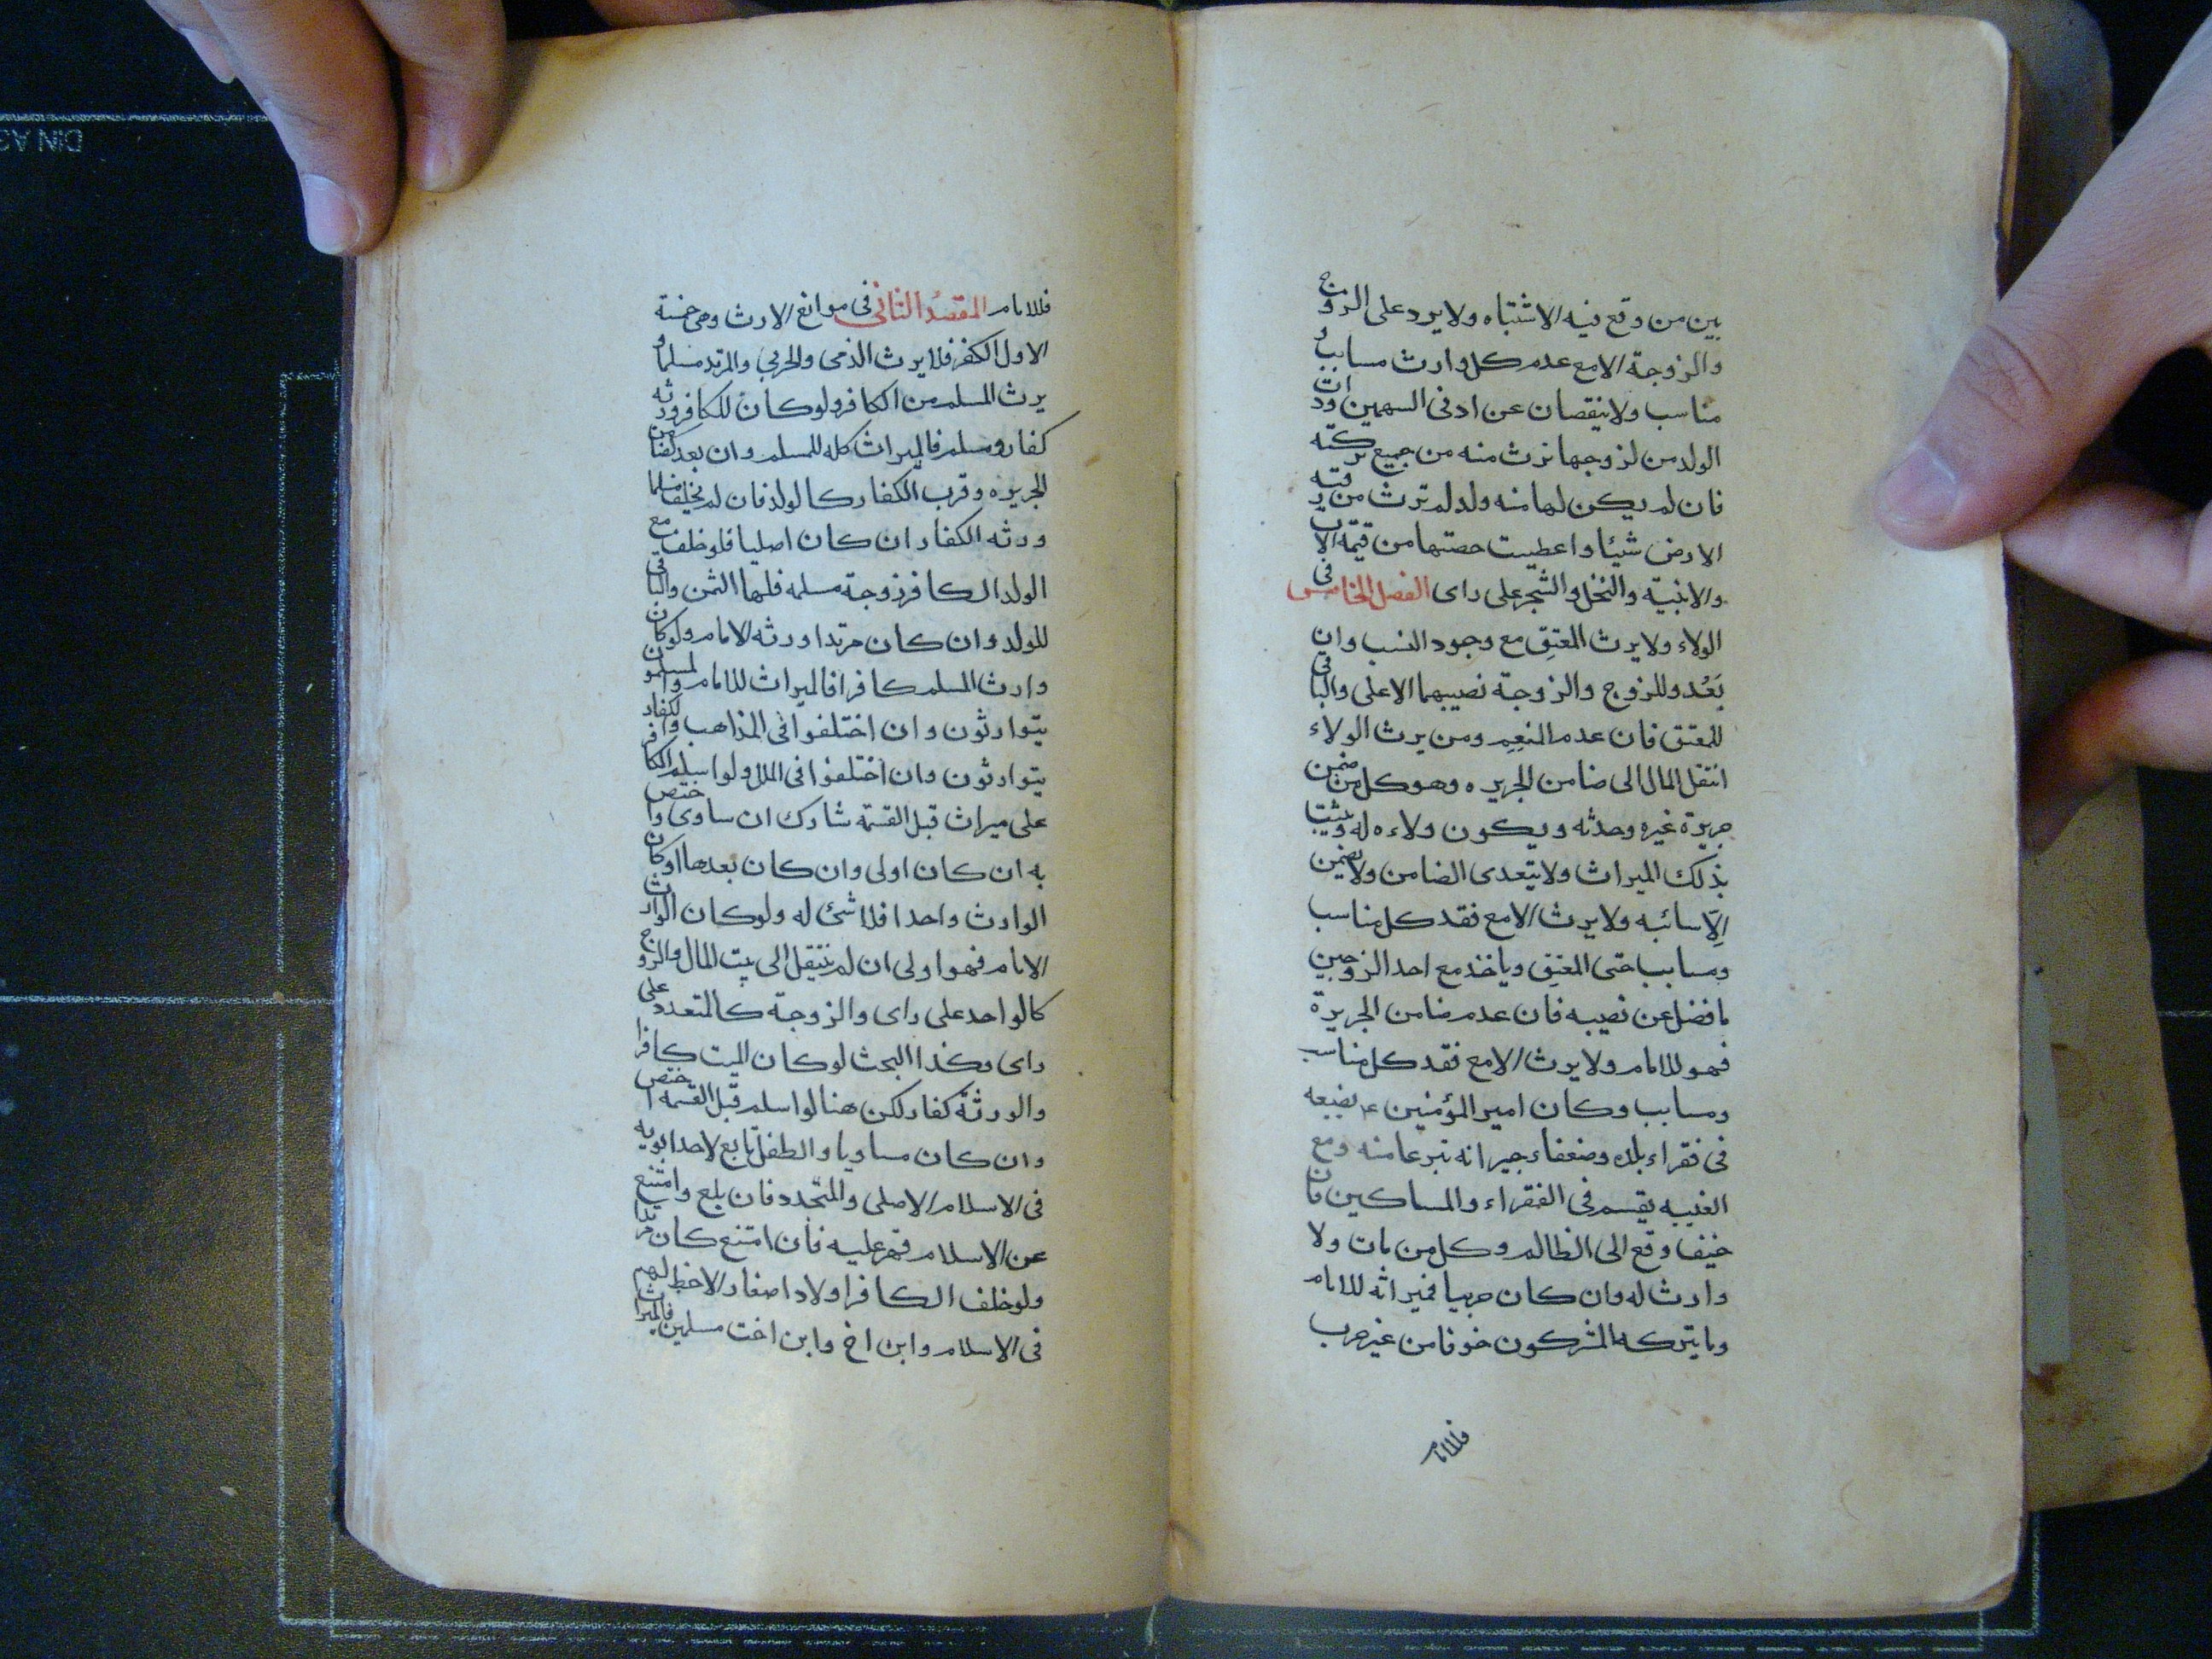 بين من وقع فيه الاشتباه ولا يرد على الزوج
والزوجة الا مع عدم كل وارث مسابب و
مناسب ولا ينقصان عن ادنى السهمين وذات
الولد من زوجها ترث منه من جميع تركته
فان لم يكن لها منه ولد لم ترث من رقبة
الارض شيئا واعطيت حصتها من قيمة الالات
والابنية والنخل والشجر على راى الفصل الخامس فى
الولاء ولا يرث المعتِق مع وجود النسب وان
بَعُد وللزوج والزوجة نصيبهما الاعلى والباقى
للمعتق فان عدم المنعِم ومن يرث الولاء
انتقل المال الى ضامن الجريره وهو كل من ضمن
جريرة غيره وحدثه ويكون ولاءه له ويثبت
بذلك الميراث ولا يتعدى الضامن ولا يضمن
اِلّا سائبه ولا يرث الا مع فقد كل مناسب
ومسابب حتى المعتِق وياخذ مع احد الزوجين
ما فضل عن نصيبه فان عدم ضامن الجريرة
فهو للامام ولا يرث الا مع فقد كل مناسب
ومسابب وكان امير المؤمنين ع يضعه
فى فقراء بلده وضعفاء جيرانه تبرعا منه ومع
الغيبه يقسم فى الفقراء والمساكين فان
خيف دفع الى الظالم وكل من مات ولا
وارث له وان كان حربيا فميراثه للامام
وما يتركه المشركون خوفا من غير حرب
فللامام
فللامام المقصد الثانى فى موانع الارث وهى خمسة
الاول الكفر فلا يرث الذمى والحربى والمرتد مسلما و
يرث المسلم من الكافر ولو كان للكافر ورثه
كفار ومسلم فالميراث كله للمسلم وان بعد كضامن
الجريره وقرب الكفار كالولد فان لم يخلف مسلما
ورثه الكفار ان كان اصليا فلو خلف مع
الولد الكافر زوجة مسلمه فلها الثمن والباقى
للولد وان كان مرتدا ورثه الامام ولو كان
وارث المسلم كافرا فالميراث للامام والمسلمون
يتوارثون وان اختلفوا فى المذاهب والكفار
يتوارثون وان اختلفوا فى الملل ولو اسلم الكافر
على ميراث قبل القسمة شارك ان ساوى واختص
به ان كان اولى وان كان بعدها او كان
الوارث واحدا فلا شئ له ولو كان الوارث
الامام فهو اولى ان لم ينتقل الى بيت المال والزوج
كالواحد على راى والزوجة كالمتعدد على
راى وكذا البحث لو كان الميت كافرا
والورثة كفار لكن هنا لو اسلم قبل القسمه اختص
وان كان مساويا والطفل تابع لاحد ابويه
فى الاسلام الاصلى والمتجدد فان بلع وامتنع
عن الاسلام قهر عليه فان امتنع كان مرتدا
ولو خلف الكافر اولادا صغارا لاحظ لهم
فى الاسلام وابن اخ وابن اخت مسلمين فالميراث